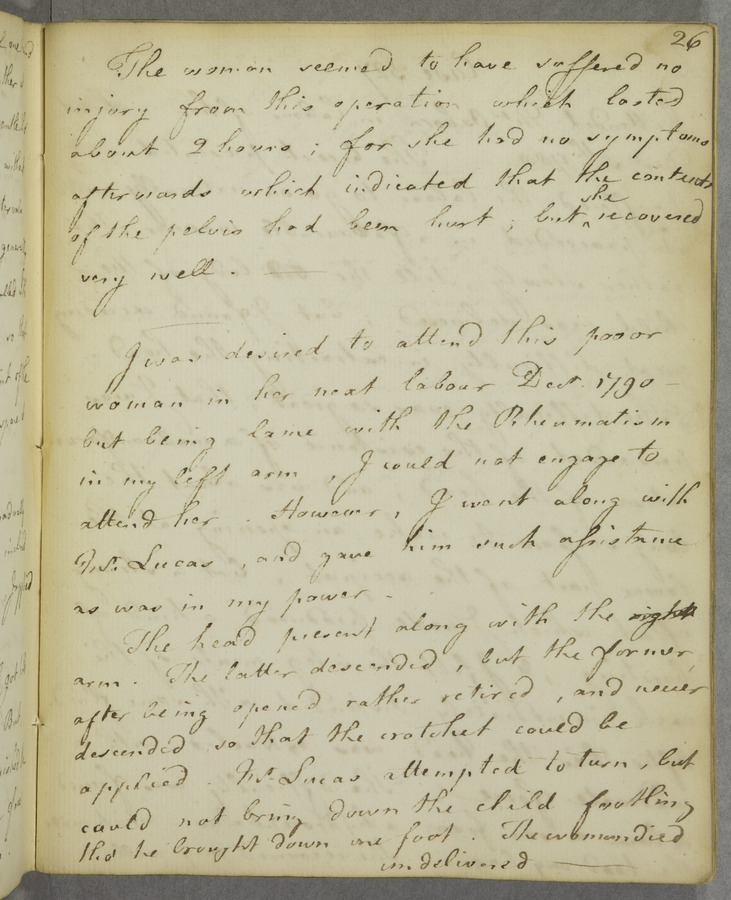 26
The woman seemed to have suffered no
injury from this operation which lasted
about 2 hours ; for she had no symptoms
afterwards which indicated that the contents
of the pelvis had been hurt ; but she recovered
very well . —
I was desired to attend this pooor
woman in her next labour Decr. 1790 —
but being lame with the Rheumatism
in my left arm , I could not engage to
attend her . However , I went along with
Mr. Lucas , and gave him such assistance
as was in my power .
The head present along with the right
arm . The latter descended , but the former,
after being opened rather retired , and never
descended so that the crotchet could be
applied . Mr. Lucas attempted to turn , but
could not bring down the child footling
tho' he brought down one foot . The woman died
undelivered —